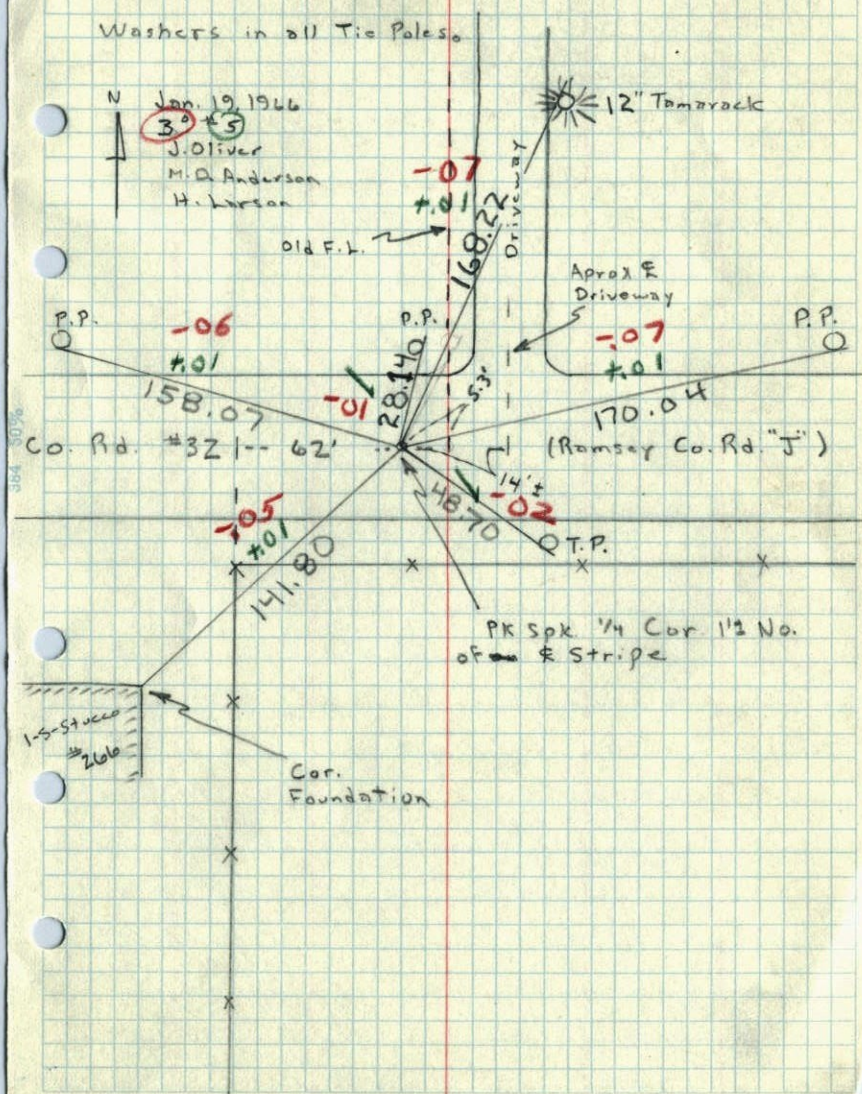 Washers in all Tie Poles.
N
Jan. 19, 1966
3° #5
J. Oliver
M.D. Anderson
H. Larson
12" Tamarack
-.07
+.01
168.22
Driveway
Old F.L.
Aprox ℄
Driveway
P.P.
-.06
+.01
158.07
P.P.
28.140
-.01
5.3'
-.07
+.01
170.04
P.P.
Co. Rd. #32 |-- 62'
(Ramsey Co. Rd. "J")
14'±
48.70
-.02
T.P.
-.05
+.01
141.80
PK Spk 1/4 Cor. 1'± No.
of ℄ Stripe
1-S-Stucco
#266
Cor.
Foundation
384 50%